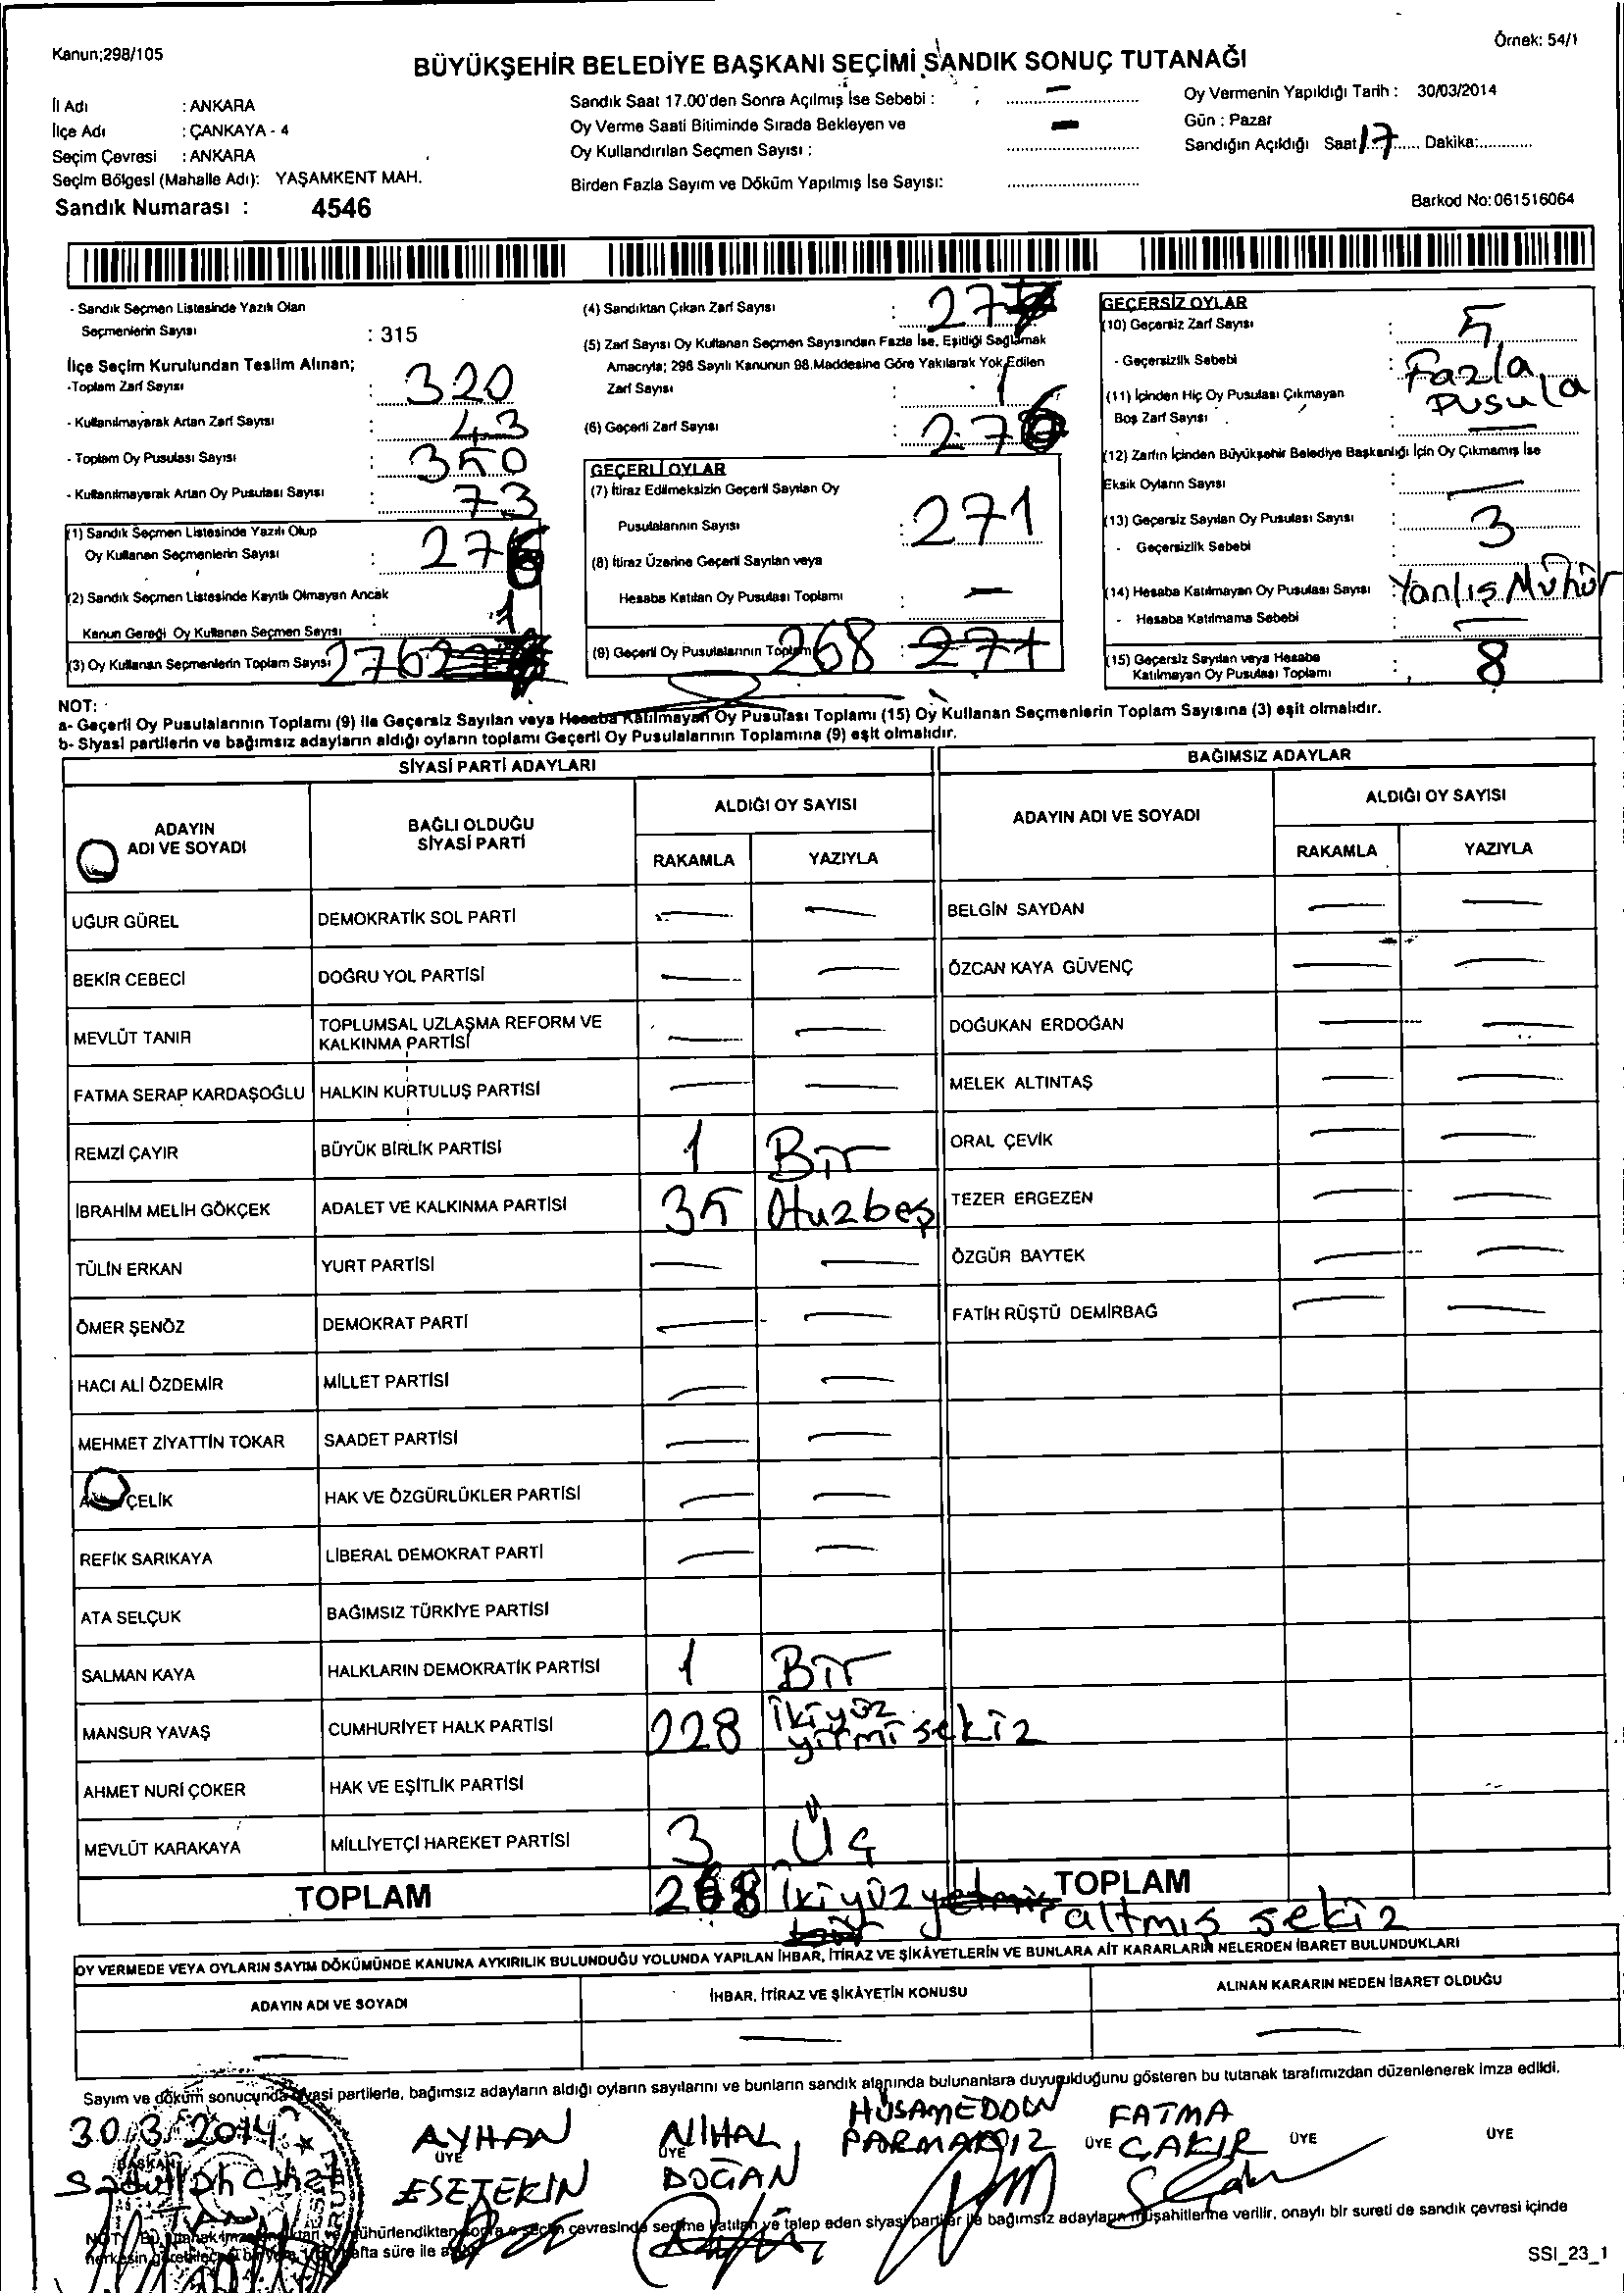 Kanun;298/105
Örnek: 54/1
BÜYÜKŞEHİR BELEDİYE BAŞKANI SEÇİMİ SANDIK SONUÇ TUTANAĞI
İl Adı : ANKARA
İlçe Adı : ÇANKAYA - 4
Seçim Çevresi : ANKARA
Seçim Bölgesi (Mahalle Adı): YAŞAMKENT MAH.
Sandık Numarası : 4546
Sandık Saat 17.00'den Sonra Açılmış İse Sebebi : —
Oy Verme Saati Bitiminde Sırada Bekleyen ve
Oy Kullandırılan Seçmen Sayısı : —
Birden Fazla Sayım ve Döküm Yapılmış İse Sayısı:
Oy Vermenin Yapıldığı Tarih : 30/03/2014
Gün : Pazar
Sandığın Açıldığı Saat 17 Dakika:
Barkod No:061516064
- Sandık Seçmen Listesinde Yazılı Olan
Seçmenlerin Sayısı : 315
İlçe Seçim Kurulundan Teslim Alınan;
-Toplam Zarf Sayısı : 320
- Kullanılmayarak Artan Zarf Sayısı : 43
- Toplam Oy Pusulası Sayısı : 350
- Kullanılmayarak Artan Oy Pusulası Sayısı : 73
(1) Sandık Seçmen Listesinde Yazılı Olup
Oy Kullanan Seçmenlerin Sayısı : 276
(2) Sandık Seçmen Listesinde Kayıtlı Olmayan Ancak
Kanun Gereği Oy Kullanan Seçmen Sayısı : 1
(3) Oy Kullanan Seçmenlerin Toplam Sayısı 276
(4) Sandıktan Çıkan Zarf Sayısı :
(5) Zarf Sayısı Oy Kullanan Seçmen Sayısından Fazla İse, Eşitliği Sağlamak
Amacıyla; 298 Sayılı Kanunun 98.Maddesine Göre Yakılarak Yok Edilen
Zarf Sayısı : 1
(6) Geçerli Zarf Sayısı : 276
GEÇERLİ OYLAR
(7) İtiraz Edilmeksizin Geçerli Sayılan Oy
Pusulalarının Sayısı : 271
(8) İtiraz Üzerine Geçerli Sayılan veya
Hesaba Katılan Oy Pusulası Toplamı : —
(9) Geçerli Oy Pusulalarının Toplamı 268 : 271
GEÇERSİZ OYLAR
(10) Geçersiz Zarf Sayısı : 5
- Geçersizlik Sebebi : Fazla Pusula
(11) İçinden Hiç Oy Pusulası Çıkmayan
Boş Zarf Sayısı : —
(12) Zarfın İçinden Büyükşehir Belediye Başkanlığı İçin Oy Çıkmamış İse
Eksik Oyların Sayısı : —
(13) Geçersiz Sayılan Oy Pusulası Sayısı : 3
- Geçersizlik Sebebi : Yanlış Mühür
(14) Hesaba Katılmayan Oy Pusulası Sayısı :
- Hesaba Katılmama Sebebi : —
(15) Geçersiz Sayılan veya Hesaba
Katılmayan Oy Pusulası Toplamı : 8
NOT:
a- Geçerli Oy Pusulalarının Toplamı (9) ile Geçersiz Sayılan veya Hesaba Katılmayan Oy Pusulası Toplamı (15) Oy Kullanan Seçmenlerin Toplam Sayısına (3) eşit olmalıdır.
b- Siyasi partilerin ve bağımsız adayların aldığı oyların toplamı Geçerli Oy Pusulalarının Toplamına (9) eşit olmalıdır.
SİYASİ PARTİ ADAYLARI
BAĞIMSIZ ADAYLAR
ADAYIN ADI VE SOYADI
BAĞLI OLDUĞU SİYASİ PARTİ
ALDIĞI OY SAYISI
RAKAMLA YAZIYLA
ADAYIN ADI VE SOYADI
ALDIĞI OY SAYISI
RAKAMLA YAZIYLA
UĞUR GÜREL DEMOKRATİK SOL PARTİ — — BELGİN SAYDAN — —
BEKİR CEBECİ DOĞRU YOL PARTİSİ — — ÖZCAN KAYA GÜVENÇ — —
MEVLÜT TANIR TOPLUMSAL UZLAŞMA REFORM VE KALKINMA PARTİSİ — — DOĞUKAN ERDOĞAN — —
FATMA SERAP KARDAŞOĞLU HALKIN KURTULUŞ PARTİSİ — — MELEK ALTINTAŞ — —
REMZİ ÇAYIR BÜYÜK BİRLİK PARTİSİ 1 Bir ORAL ÇEVİK — —
İBRAHİM MELİH GÖKÇEK ADALET VE KALKINMA PARTİSİ 35 Otuzbeş TEZER ERGEZEN — —
TÜLİN ERKAN YURT PARTİSİ — — ÖZGÜR BAYTEK — —
ÖMER ŞENÖZ DEMOKRAT PARTİ — — FATİH RÜŞTÜ DEMİRBAĞ — —
HACI ALİ ÖZDEMİR MİLLET PARTİSİ — —
MEHMET ZİYATTİN TOKAR SAADET PARTİSİ — —
ÇELİK HAK VE ÖZGÜRLÜKLER PARTİSİ — —
REFİK SARIKAYA LİBERAL DEMOKRAT PARTİ — —
ATA SELÇUK BAĞIMSIZ TÜRKİYE PARTİSİ
SALMAN KAYA HALKLARIN DEMOKRATİK PARTİSİ 1 Bir
MANSUR YAVAŞ CUMHURİYET HALK PARTİSİ 228 İkiyüz yirmi sekiz
AHMET NURİ ÇOKER HAK VE EŞİTLİK PARTİSİ
MEVLÜT KARAKAYA MİLLİYETÇİ HAREKET PARTİSİ 3 Üç
TOPLAM 268 İkiyüz yetmiş TOPLAM
altmış sekiz
OY VERMEDE VEYA OYLARIN SAYIM DÖKÜMÜNDE KANUNA AYKIRILIK BULUNDUĞU YOLUNDA YAPILAN İHBAR, İTİRAZ VE ŞİKÂYETLERİN VE BUNLARA AİT KARARLARIN NELERDEN İBARET BULUNDUKLARI
ADAYIN ADI VE SOYADI İHBAR, İTİRAZ VE ŞİKÂYETİN KONUSU ALINAN KARARIN NEDEN İBARET OLDUĞU
— — —
Sayım ve döküm sonucunda siyasi partilerle, bağımsız adayların aldığı oyların sayılarını ve bunların sandık alanında bulunanlara duyurulduğunu gösteren bu tutanak tarafımızdan düzenlenerek imza edildi.
30/3/2014 AYHAN NİHAL HÜSAMEDDİN FATMA
BAŞKAN ÜYE ÜYE PARMAKSIZ ÜYE ÇAKIR ÜYE ÜYE
ESETEKİN DOĞAN
çevresinde seçime katılan ve talep eden siyasi partiler ile bağımsız adayların müşahitlerine verilir, onaylı bir sureti de sandık çevresi içinde
hafta süre ile
SSI_23_1